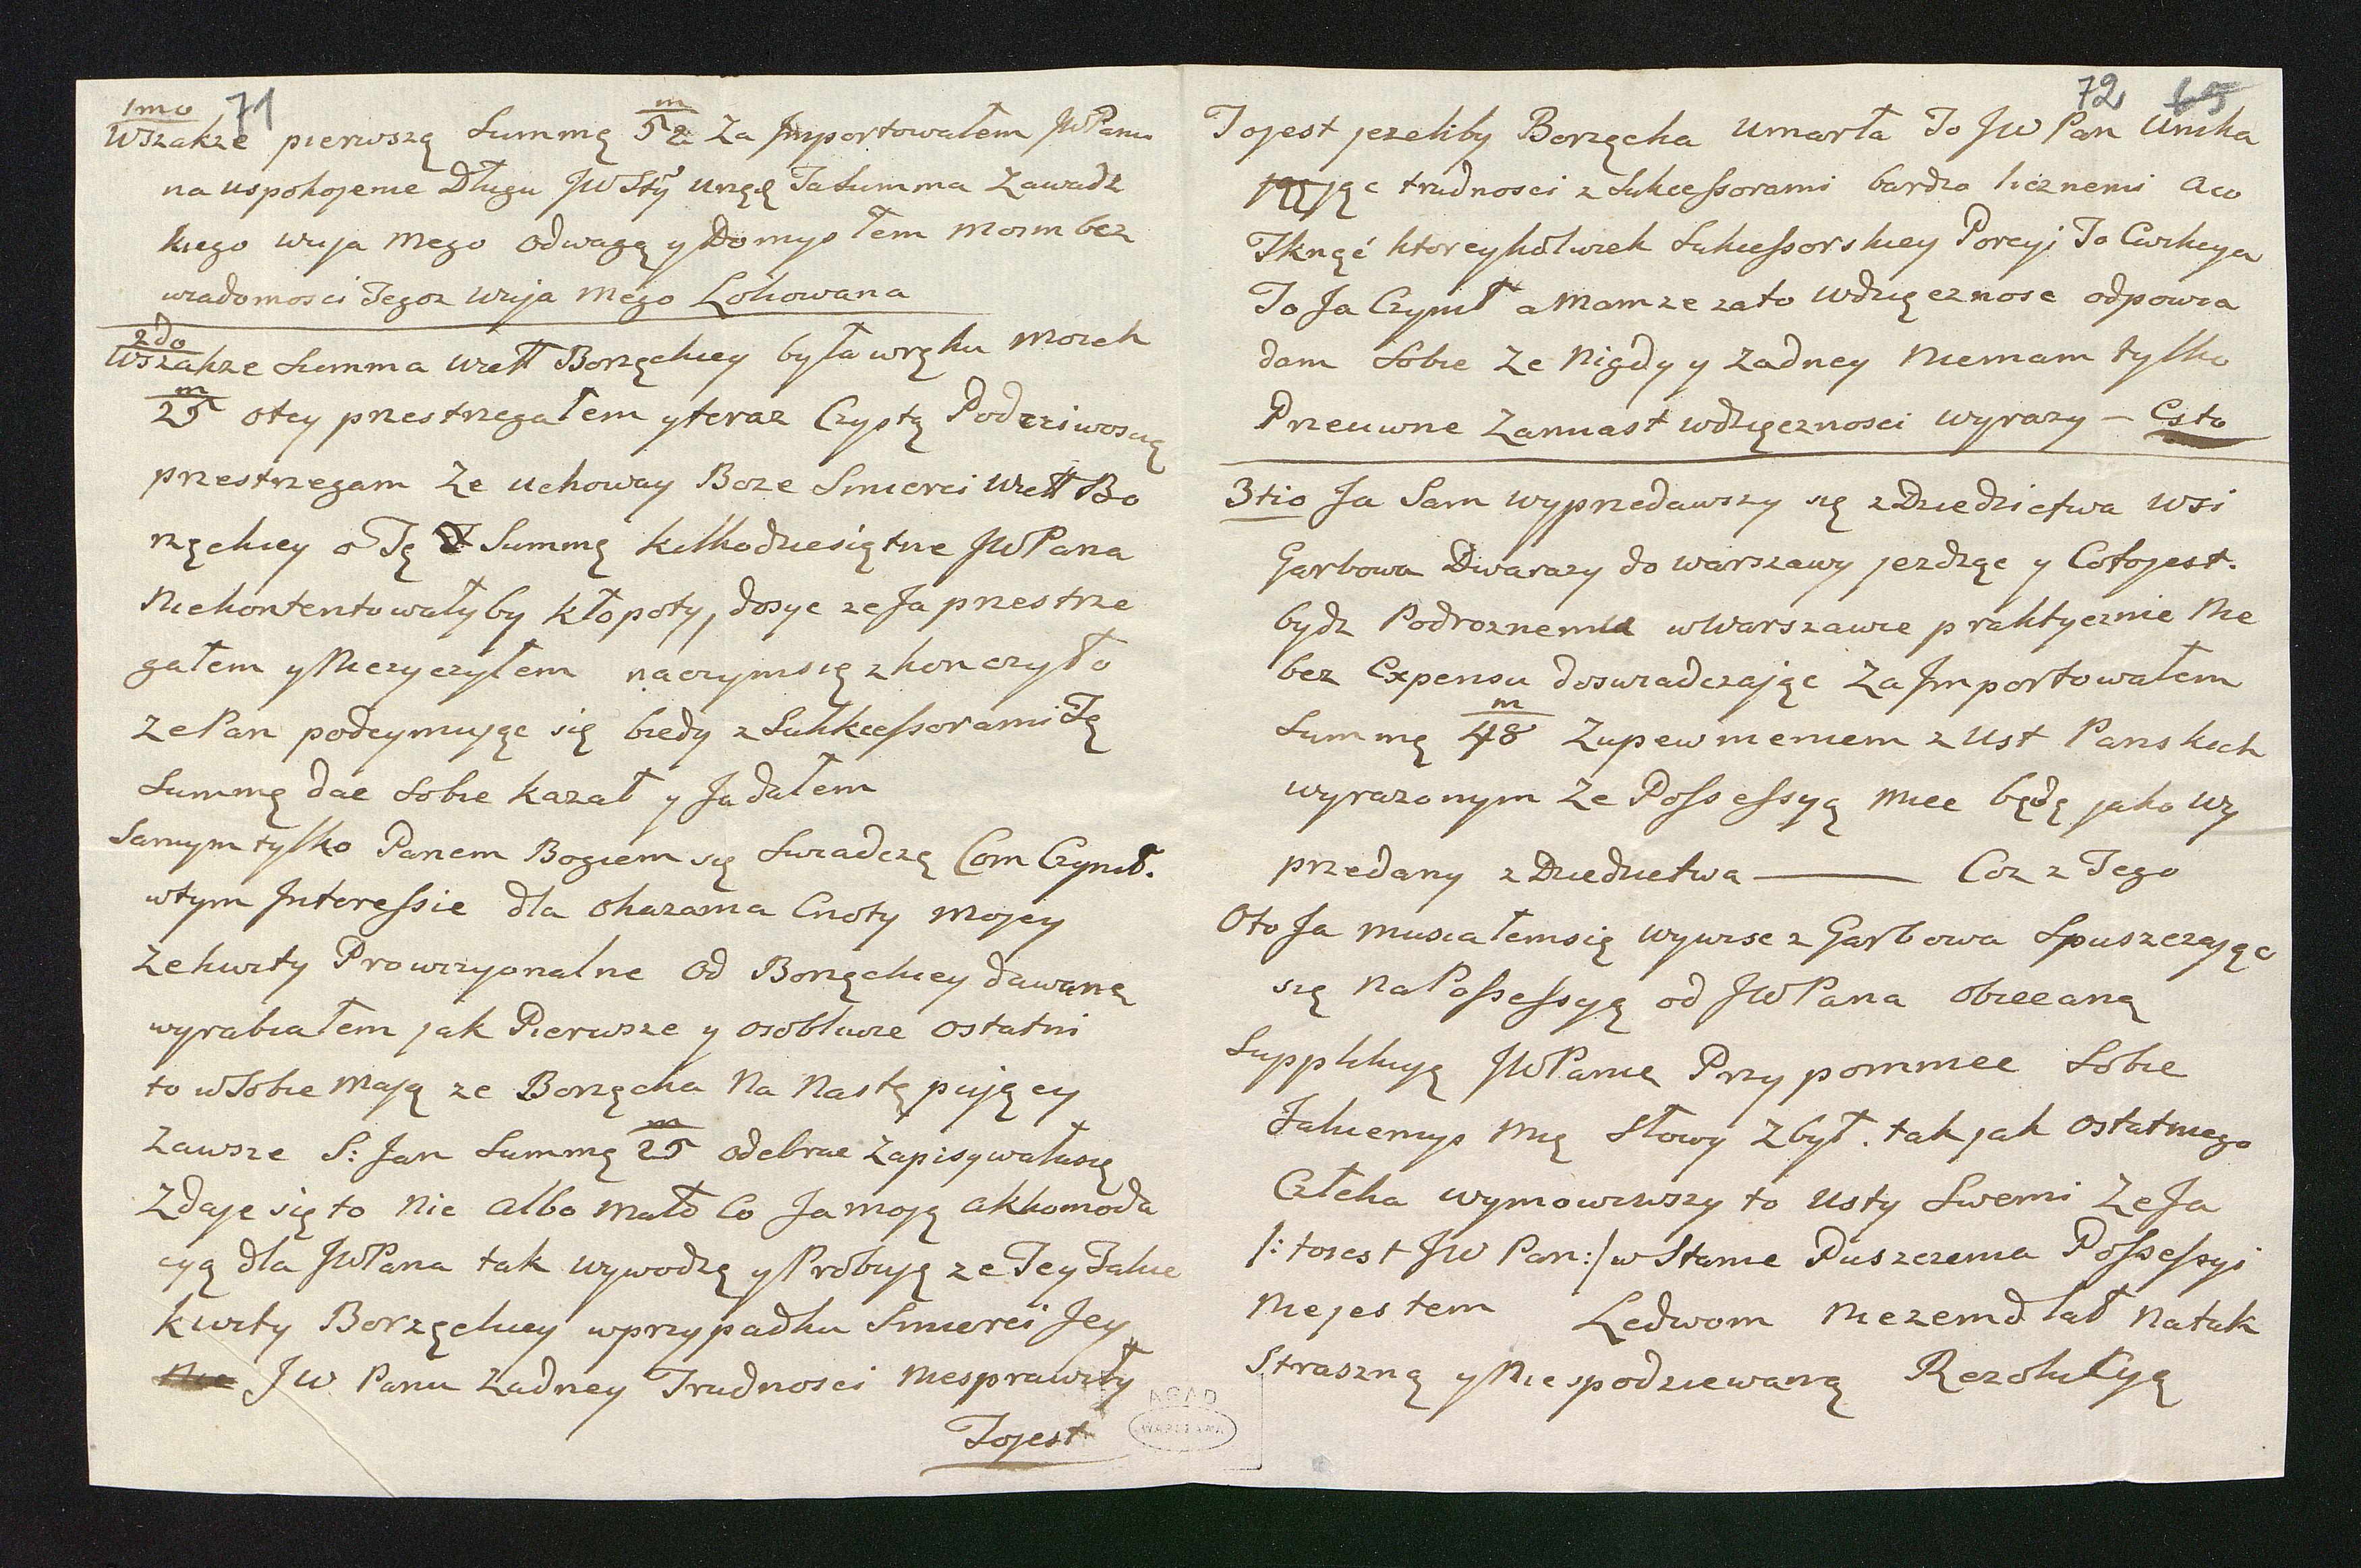 71
1mo
Wszakze pierwszą Summę 52 m Za Importowałem JWPanu
na uspokojenie Długu JWStty Ta Summa Zawadz
kiego wuja mego odwagą y Domysłem moim bez
wiadomosci Tegoz wuja mego Lokowana
2do
Wszakze Summa Wctt Borzęckiey była w ręku moich
25 m o tey przestrzegałem y teraz Czystą Podcziwoscią
przestrzegam Ze uchoway Boze Smierci Wctt Bo
rzęckiey o Tę Summę kilkodziesiątne JWPana
Niekontentowałyby kłopoty, dosyc ze Ja przestrze
gałem y Nieryczyłem na czym się zkonczyło
Ze Pan podeymując się biedy z Sukkcessorami Tę
Summę dac Sobie kazał y Ja dałem
Samym tylko Panem Bogiem się Swiadczę Com Czynił.
w tym Interessie dla okazania Cnoty mojey
Ze kwity Prowizyonalne od Borzęckiey dawane
wyrabiałem jak Pierwsze y osobliwie ostatni
to w Sobie mają ze Borzęcka Na Następujący
Zawsze S: Jan Summę 25 m odebrac Zapisywała się
Zdaje się to nic albo mało Co Ja moją akkomoda
cyą dla JWPana tak wywodzę y Probuję ze Tey Takie
kwity Borzęckiey w przypadku Smierci Jey
JW Panu Zadney Trudnosci niesprawiły
Tojest
72 65
Tojest jezeliby Borzęcka umarła To JW Pan Unika
jąc trudnosci z Sukcessorami bardzo licznemi a co
Tknąć ktoreykolwiek Sukcessorskiey Porcyi To
To Ja Czynił a Mamze zato wdzięcznosc odpowia
dam Sobie Ze Nigdy y Zadney Niemam tylko
Przeciwne Zamiast wdzięcznosci wyrazy — Esto
3tio Ja Sam wyprzedawszy się z Dziedzictwa Wsi
Garbowa Dwarazy do Warszawy jezdząc y Co tojest.
bydz Podroznemu w Warszawie praktycznie Nie
bez Expensu doswiadczając Za Importowałem
Summę 48 m Zupewnieniem z Ust Panskich
wyrazonym Ze Possessyą miec będę jako Wy
przedany z Dziedzictwa — Coz z Tego
Oto Ja musiałem się wywisc z Garbowa Spuszczając
się Na Possessyą od JWPana obiecaną
Supplikuję JWPanie Przypomniec Sobie
Jakiemys mię Słowy Zbył. tak jak ostatniego
Człeka wymowiwszy to Usty Swemi Ze Ja
/: to iest JW Pan :/ w Stanie Puszczenia Possessyi
Niejestem Ledwom Niezemdlał Natak
Straszną y Niespodziewaną Rezolucyą
AGAD
WARSZAWA